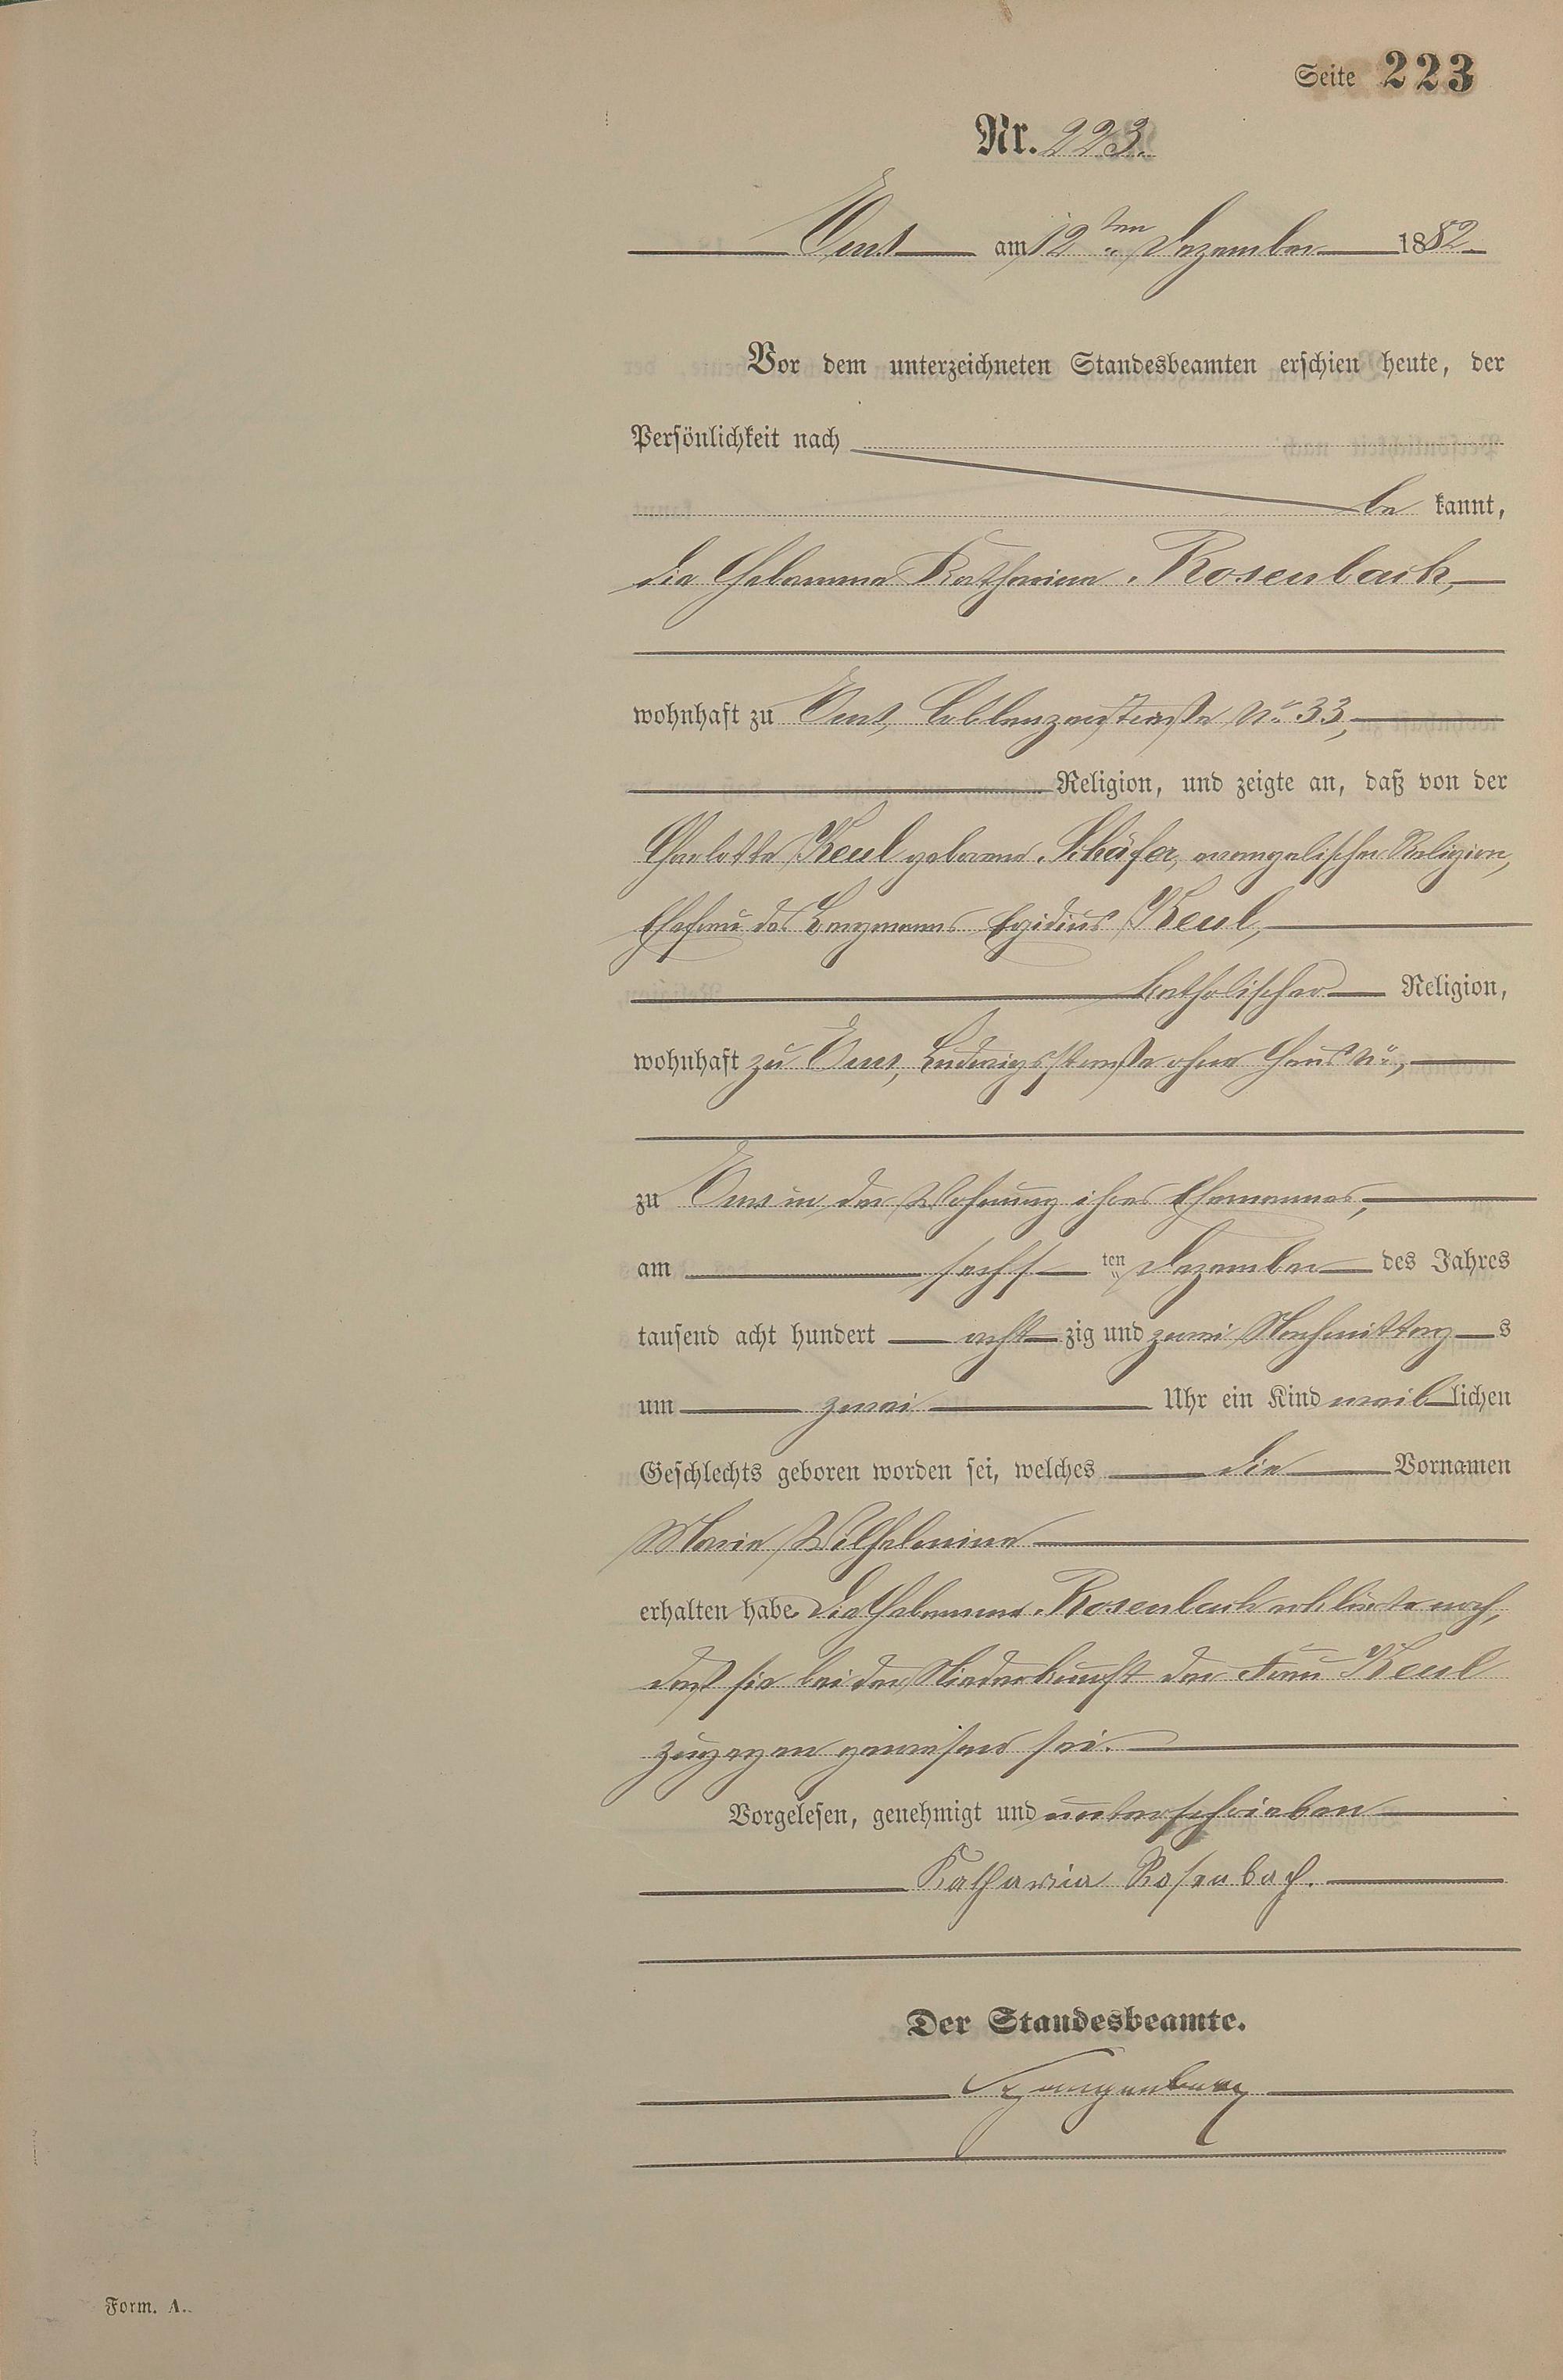 Seite 223
Nr. 223.
Ems am 12ten Dezember 1882
Vor dem unterzeichneten Standesbeamten erschien heute, der
Persönlichkeit nach
be kannt,
die Hebamme Katharina Rosenbach,
wohnhaft zu Ems, Coblenzerstraße No 33,
Religion, und zeigte an, daß von der
Charlotte Keul geborene Schäfer, evangelischer Religion,
Ehefrau des Bergmanns Egidius Keul,
katholischer Religion,
wohnhaft zu Ems, Ludwigsstraße ohne Haus No,
zu Ems in der Wohnung ihres Ehemannes,
am sechsten Dezember des Jahres
tausend acht hundert acht zig und zwei Nachmittags
um zwei Uhr ein Kind weiblichen
Geschlechts geboren worden sei, welches die Vornamen
Maria Wilhelmina
erhalten habe. Die Hebamme Rosenbach erklärte noch,
daß sie bei der Niederkunft der Frau Keul
zugegen gewesen sei.
Vorgelesen, genehmigt und unterschrieben
Katharina Rosenbach.
Der Standesbeamte.
Form. A.